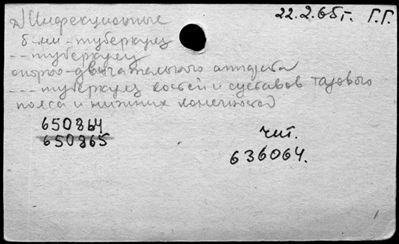 Инфекционные 22.2.65г. Г.Г.
б-ни - туберкулез
-- туберкулез
опорно-двигательного аппарата
--- туберкулез костей и суставов тазового
пояса и нижних конечностей
650864
650865
чит.
636064.